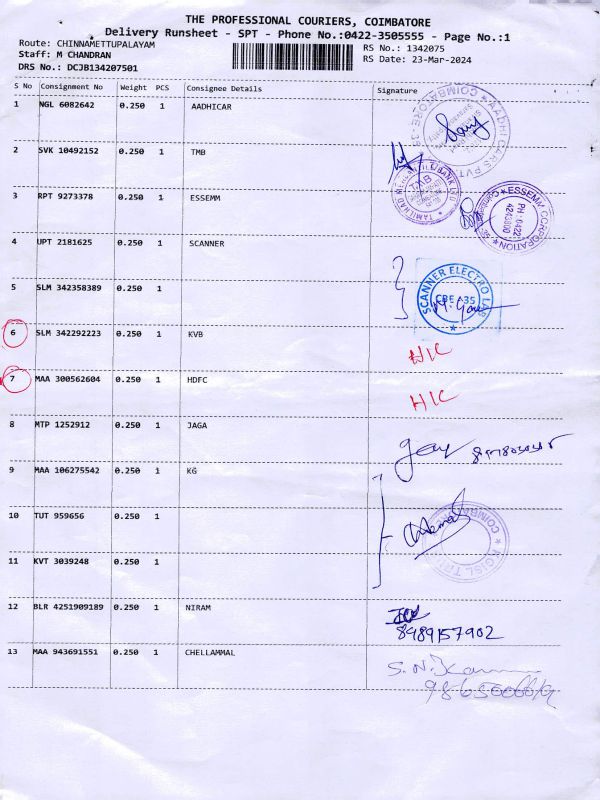 THE PROFESSIONAL COURIERS, COIMBATORE
Delivery Runsheet - SPT - Phone No.:0422-3505555 - Page No.:1
Route: CHINNAMETTUPALAYAM
Staff: M CHANDRAN
DRS No.: DCJB134207501
RS No.: 1342075
RS Date: 23-Mar-2024
S No Consignment No Weight PCS Consignee Details Signature
1 NGL 6082642 0.250 1 AADHICAR
2 SVK 10492152 0.250 1 TMB
3 RPT 9273378 0.250 1 ESSEMM
ESSEMM CORPORATION
PH : 0422
4 UPT 2181625 0.250 1 SCANNER
5 SLM 342358389 0.250 1
SCANNER ELECTRO LAB
CBE - 35
6 SLM 342292223 0.250 1 KVB
7 MAA 300562604 0.250 1 HDFC
8 MTP 1252912 0.250 1 JAGA
9 MAA 106275542 0.250 1 KG
10 TUT 959656 0.250 1
11 KVT 3039248 0.250 1
12 BLR 4251909189 0.250 1 NIRAM
8989157902
13 MAA 943691551 0.250 1 CHELLAMMAL